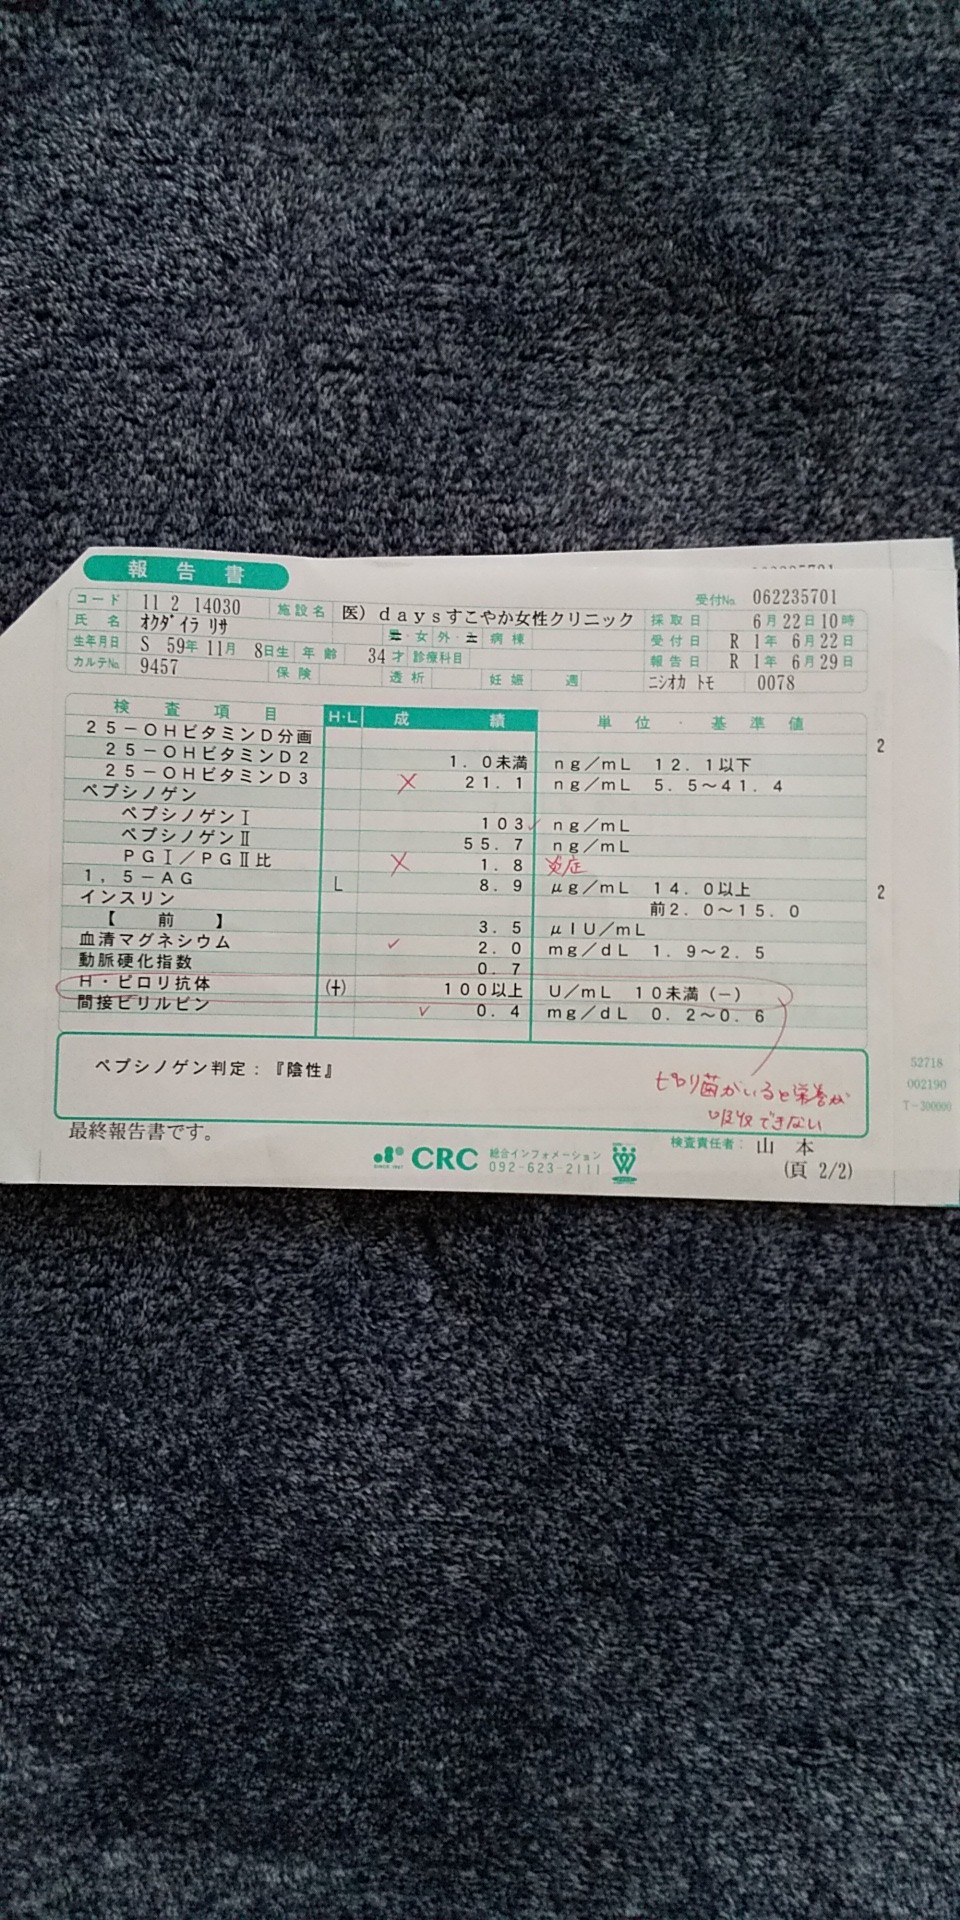 報告書
受付No. 062235701
コード 11 2 14030 施設名 医)daysすこやか女性クリニック 採取日 6月22日10時
氏名 オクダイラ リサ 女 外 病棟 受付日 R 1年 6月22日
生年月日 S 59年11月 8日生 年齢 34才 診療科目 報告日 R 1年 6月29日
カルテNo. 9457 保険 透析 妊娠 週 ニシオカ トモ 0078
検査項目 H・L 成績 単位・基準値
25-OHビタミンD分画 2
25-OHビタミンD2 1.0未満 ng/mL 12.1以下
25-OHビタミンD3 × 21.1 ng/mL 5.5~41.4
ペプシノゲン
ペプシノゲンⅠ 103 ✓ ng/mL
ペプシノゲンⅡ 55.7 ng/mL
PGⅠ/PGⅡ比 × 1.8 炎症
1,5-AG L 8.9 μg/mL 14.0以上 2
インスリン 前2.0~15.0
【 前 】 3.5 μIU/mL
血清マグネシウム ✓ 2.0 mg/dL 1.9~2.5
動脈硬化指数 0.7
H・ピロリ抗体 (+) 100以上 U/mL 10未満(-)
間接ビリルビン ✓ 0.4 mg/dL 0.2~0.6
ペプシノゲン判定:『陰性』
ピロリ菌がいると栄養が
吸収できない
52718
002190
T-300000
最終報告書です。
CRC 総合インフォメーション
SINCE 1967 092-623-2111
検査責任者: 山 本
(頁 2/2)